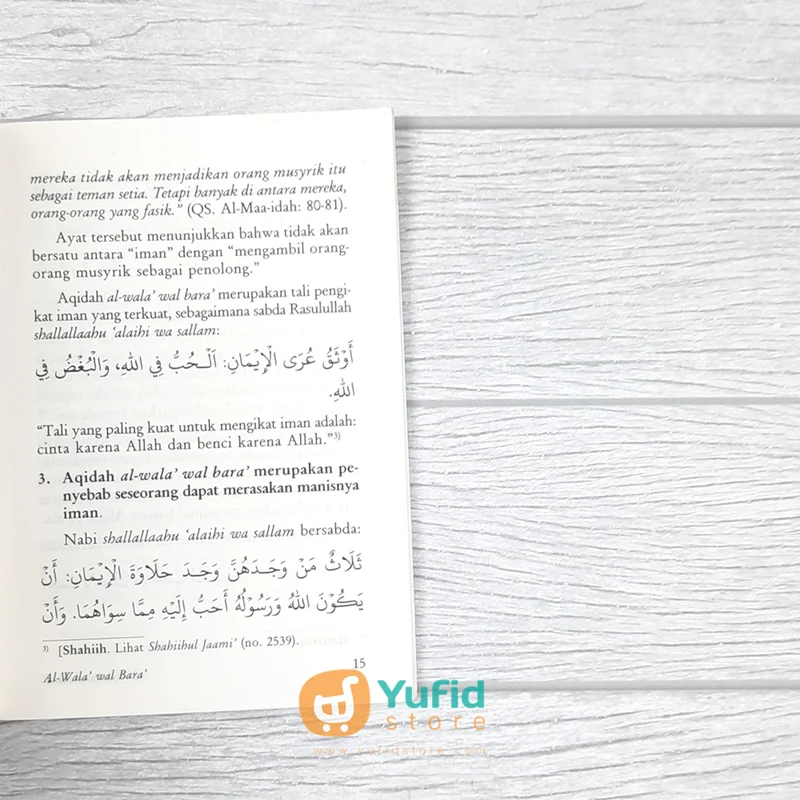 mereka tidak akan menjadikan orang musyrik itu
sebagai teman setia. Tetapi banyak di antara mereka,
orang-orang yang fasik.” (QS. Al-Maa-idah: 80-81).
Ayat tersebut menunjukkan bahwa tidak akan
bersatu antara “iman” dengan “mengambil orang-
orang musyrik sebagai penolong.”
Aqidah al-wala’ wal bara’ merupakan tali pengi-
kat iman yang terkuat, sebagaimana sabda Rasulullah
shallallaahu ‘alaihi wa sallam:
أَوْثَقُ عُرَى الْإِيْمَانِ: اَلْـحُبُّ فِي اللهِ، وَالْبُغْضُ فِي
اللهِ.
“Tali yang paling kuat untuk mengikat iman adalah:
cinta karena Allah dan benci karena Allah.”3)
3. Aqidah al-wala’ wal bara’ merupakan pe-
nyebab seseorang dapat merasakan manisnya
iman.
Nabi shallallaahu ‘alaihi wa sallam bersabda:
ثَلَاثٌ مَنْ وَجَـدَهُنَّ وَجَـدَ حَلَاوَةَ الْإِيْمَانِ: أَنْ
يَكُوْنَ اللهُ وَرَسُوْلُهُ أَحَبُّ إِلَيْهِ مِمَّا سِوَاهُمَا. وَأَنْ
3) [Shahiih. Lihat Shahiihul Jaami’ (no. 2539).
15
Al-Wala’ wal Bara’
Yufid
store
www.yufidstore.com